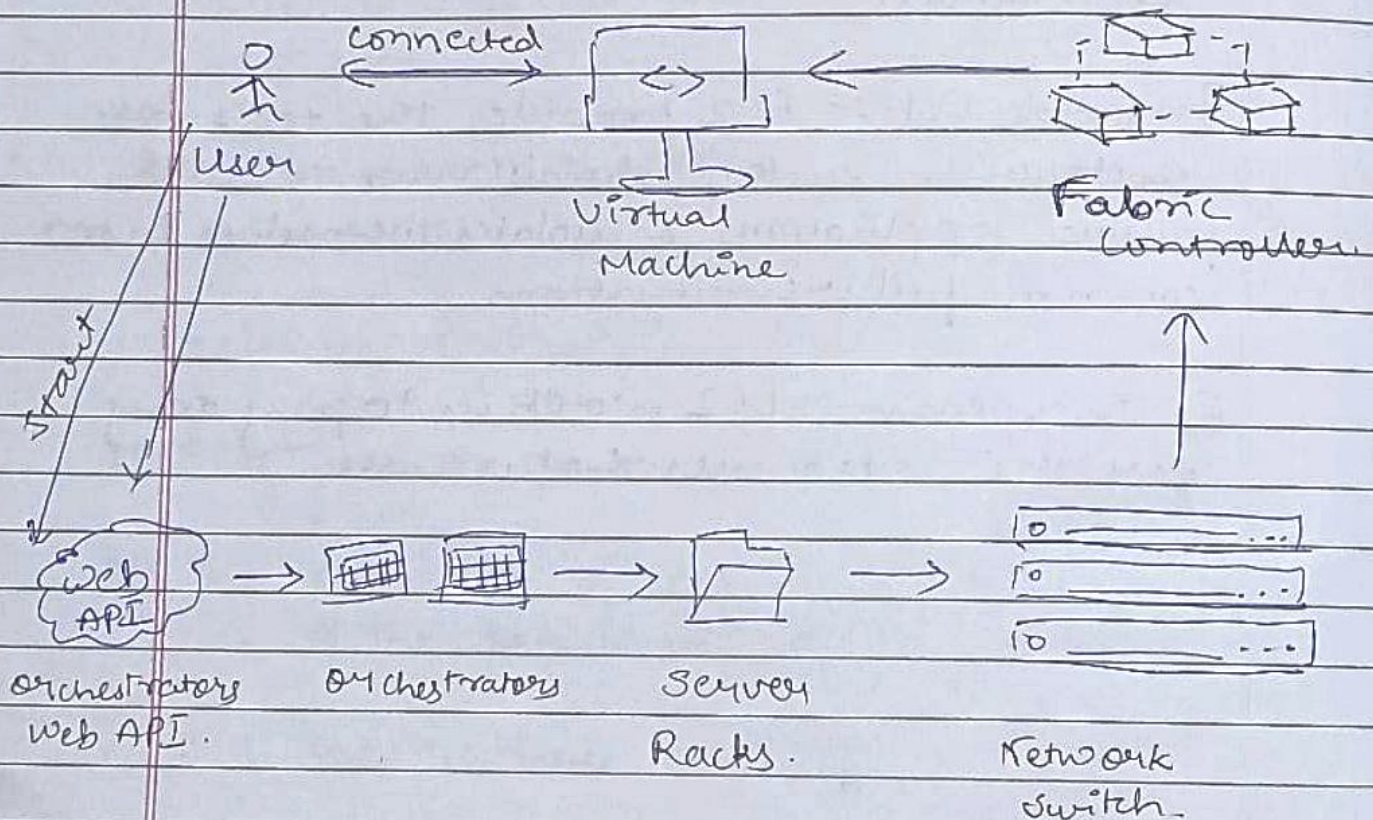 connected
User
Virtual
Machine
Fabric
Controller.
Start
Web
API
Orchestrators
Web API.
Orchestrators
Server
Racks.
Network
Switch.